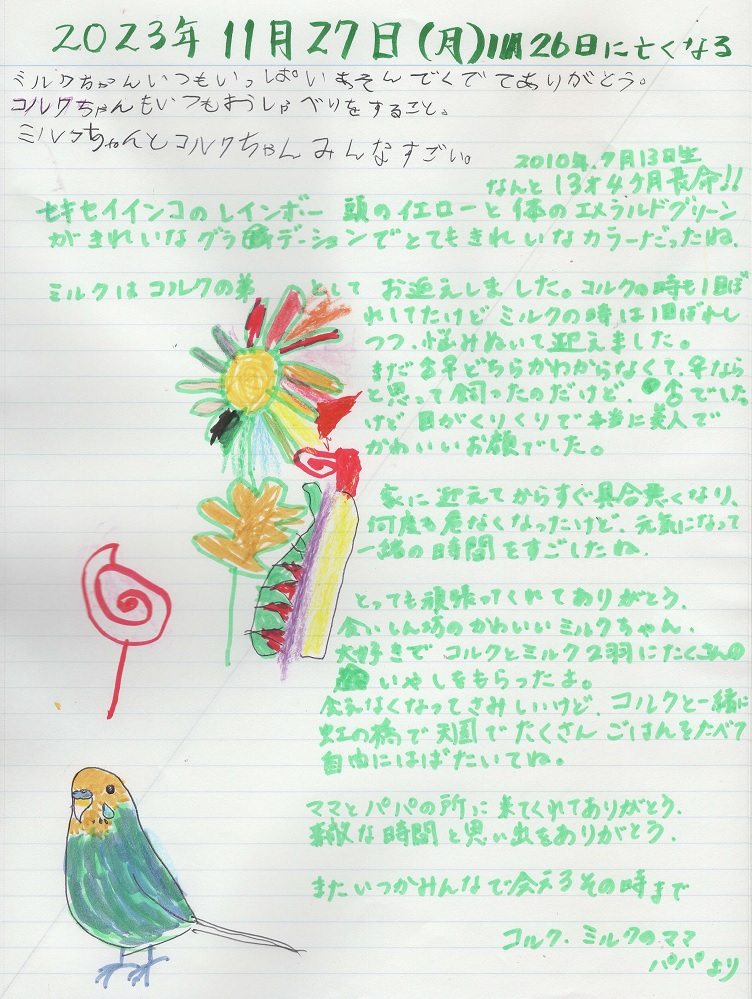 2023年 11月27日(月)11月26日に亡くなる
ミルクちゃんいつもいっぱいあそんでくでてありがとう。
コルクちゃんもいつもおしゃべりをすること。
ミルクちゃんとコルクちゃんみんなすごい。
2010年.7月13日生
なんと13才4ヶ月長命!!
セキセイインコのレインボー 頭のイエローと体のエメラルドグリーン
がきれいなグラディデーションでとてもきれいなカラーだったね.
ミルクはコルクの弟 として お迎えしました。コルクの時も1目ぼ
れしてたけどミルクの時は1目ぼれし
つつ、悩みぬいて迎えました。
まだ ♂♀どちらかわからなくて、♀なら
と思って飼ったのだけど、♂でした
けど 目がくりくりで本当に美人で
かわいいお顔でした。
家に迎えてからすぐ具合悪くなり、
何度も危なくなったけど、元気になって
一緒の時間をすごしたね.
とっても頑張ってくれてありがとう.
食いしん坊のかわいいミルクちゃん.
大好きで コルクとミルク2羽にたくさんの
いやしをもらったよ。
会えなくなってさみしいけど、コルクと一緒に
虹の橋で天国でたくさん ごはんをたべて
自由にはばたいてね。
ママとパパの所に来てくれてありがとう.
素敵な時間と思い出をありがとう.
またいつかみんなで会えるその時まで
コルク.ミルクのママ
パパより